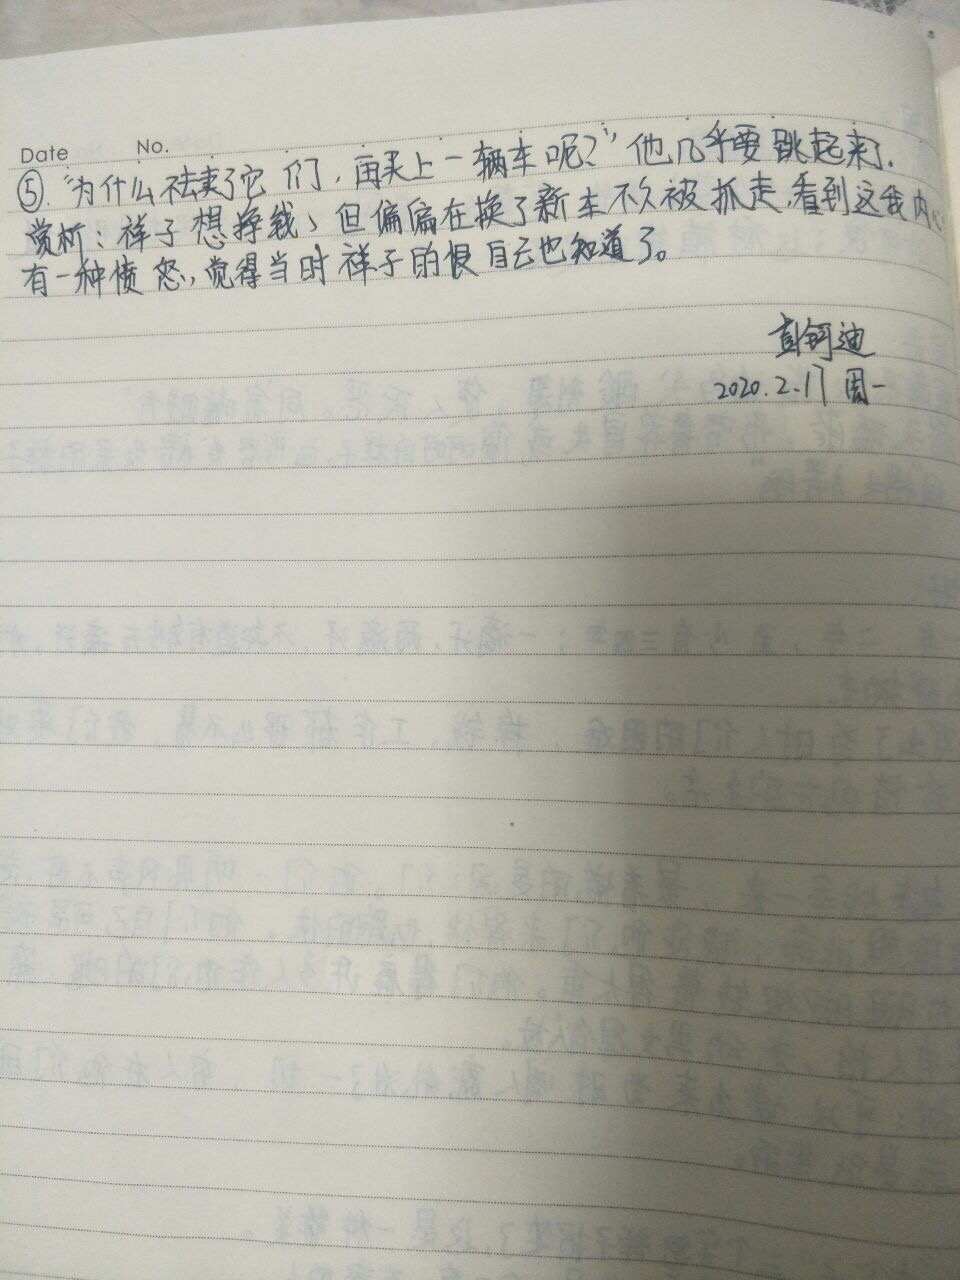 Date No.
⑤."为什么不去卖了它们,再买上一辆车呢?"他几乎要跳起来了.
赏析:祥子想挣钱,但偏偏在换了新车不久被抓走,看到这我内心
有一种愤怒,觉得当时祥子的恨自己也知道了。
彭钶迪
2020.2.17 周一